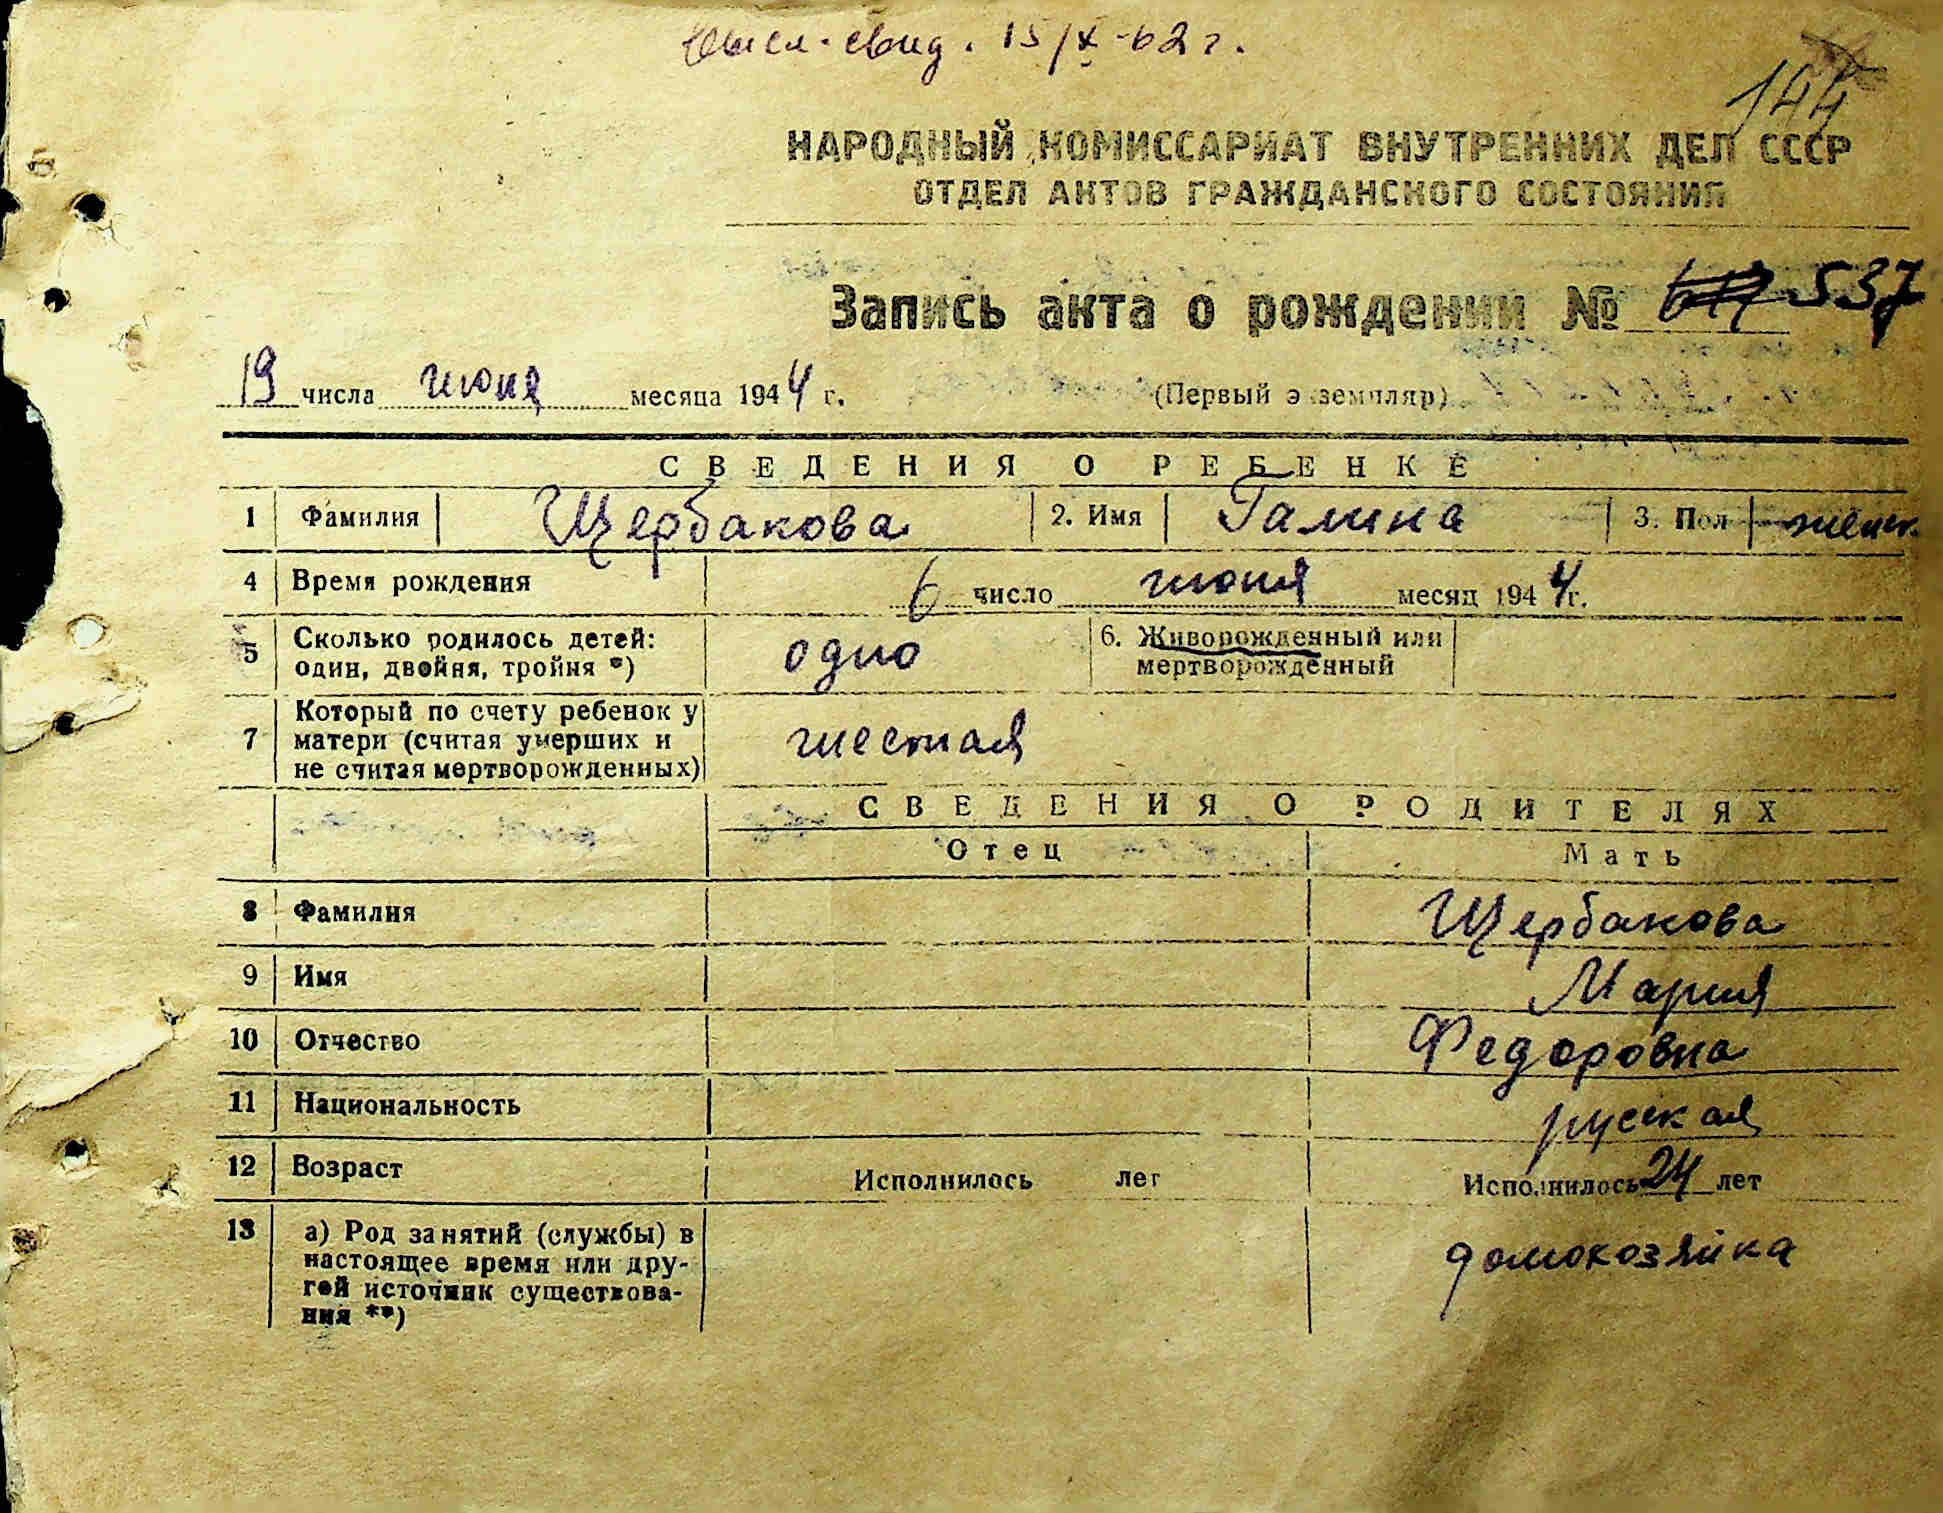 Высл. свид. 15/X-62 г.
144
НАРОДНЫЙ КОМИССАРИАТ ВНУТРЕННИХ ДЕЛ СССР
ОТДЕЛ АКТОВ ГРАЖДАНСКОГО СОСТОЯНИЯ
Запись акта о рождении № 537
19 числа июня месяца 1944 г. (Первый экземпляр)
СВЕДЕНИЯ О РЕБЕНКЕ
1 Фамилия Щербакова 2. Имя Галина 3. Пол женск.
4 Время рождения 6 число июня месяц 1944 г.
5 Сколько родилось детей: один, двойня, тройня *) одно 6. Живорожденный или мертворожденный
7 Который по счету ребенок у матери (считая умерших и не считая мертворожденных) шестая
СВЕДЕНИЯ О РОДИТЕЛЯХ
Отец Мать
8 Фамилия Щербакова
9 Имя Мария
10 Отчество Федоровна
11 Национальность русская
12 Возраст Исполнилось лет Исполнилось 24 лет
13 а) Род занятий (службы) в
настоящее время или дру-
гой источник существова-
ния **)
домохозяйка